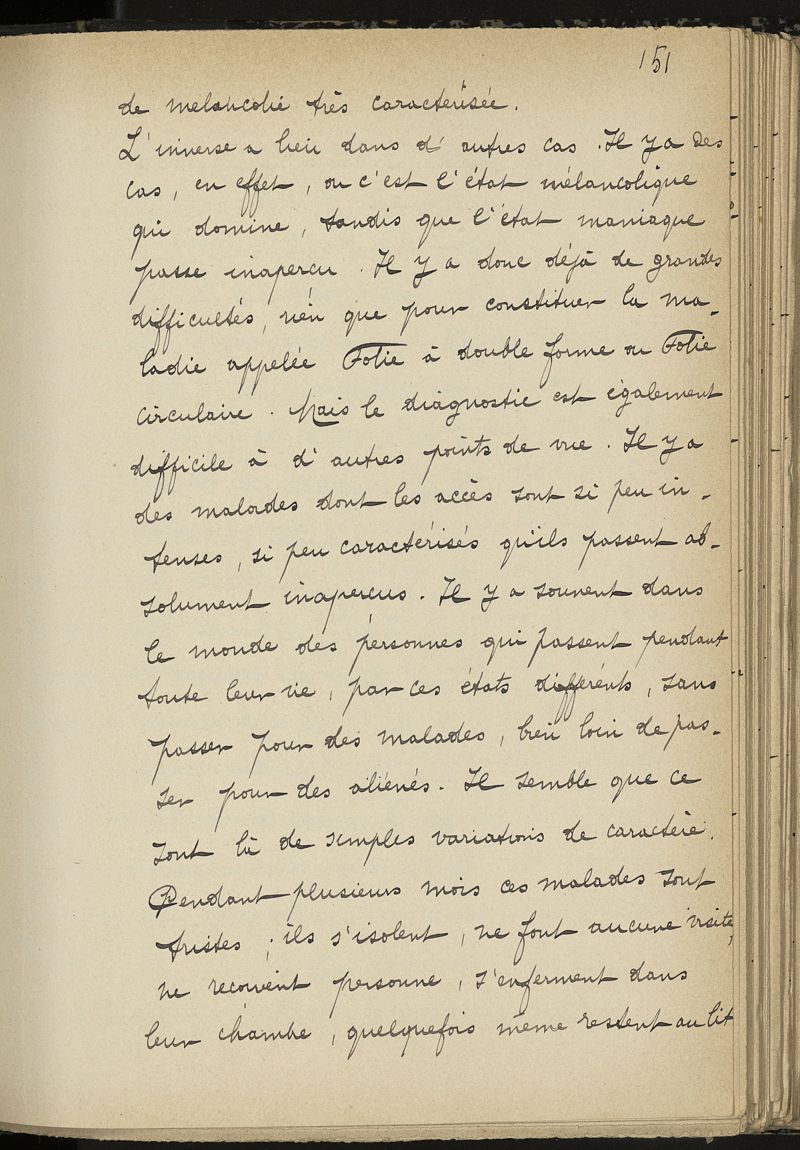 151
de melancolie très caractérisée.
L'inverse a lieu dans d'autres cas. Il y a des
cas, en effet, ou c'est l'état mélancolique
qui domine, tandis que l'état maniaque
passe inapercu. Il y a donc déjà de grandes
difficultés, rien que pour constituer la ma-
ladie appelée Folie à double forme ou Folie
circulaire. Mais le diagnostic est également
difficile à d'autres points de vue. Il y a
des malades dont les accès sont si peu in-
tenses, si peu caractérisés qu'ils passent ab-
solument inapercus. Il y a souvent dans
le monde des personnes qui passent pendant
toute leur vie, par ces états différents, sans
passer pour des malades, bien loin de pas-
ser pour des aliénés. Il semble que ce
sont là de simples variations de caractère.
Pendant plusieurs mois ces malades sont
tristes; ils s'isolent, ne font aucune visite,
ne recoivent personne, s'enferment dans
leur chambre, quelquefois même restent au lit